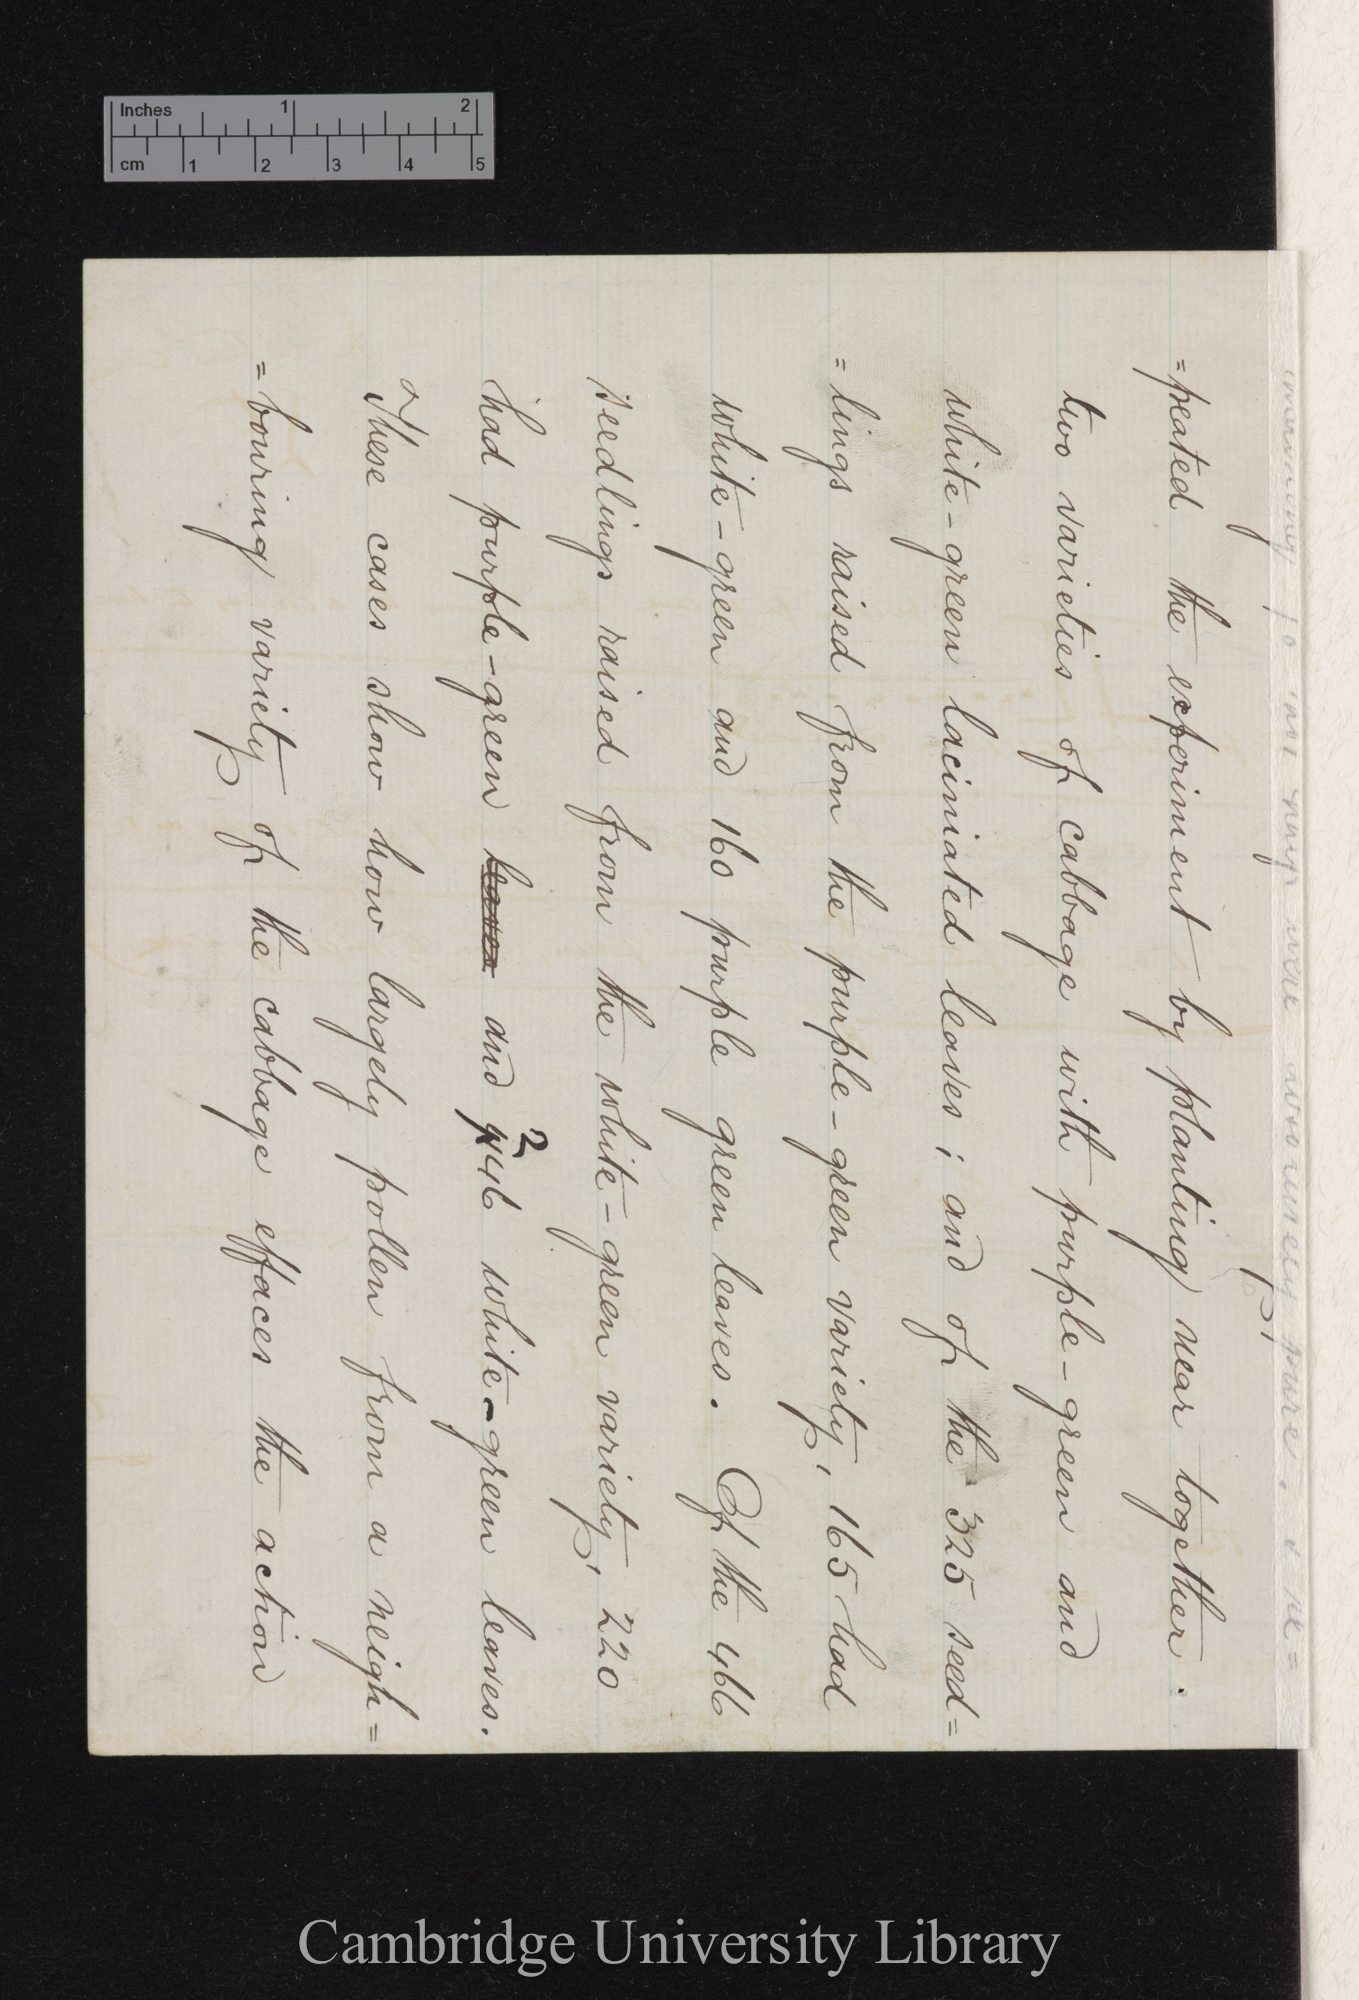 Inches 1 2
cm 1 2 3 4 5
remaining 78 were absolutely pure. I re=
=peated the experiment by planting near together
two varieties of cabbage with purple-green and
white-green laciniated leaves; and of the 325 seed=
=lings raised from the purple-green variety, 165 had
white-green and 160 purple green leaves. Of the 466
seedlings raised from the white-green variety, 220
had purple-green leaves and 2 446 white-green leaves.
These cases show how largely pollen from a neigh=
=bouring variety of the cabbage effaces the action
Cambridge University Library